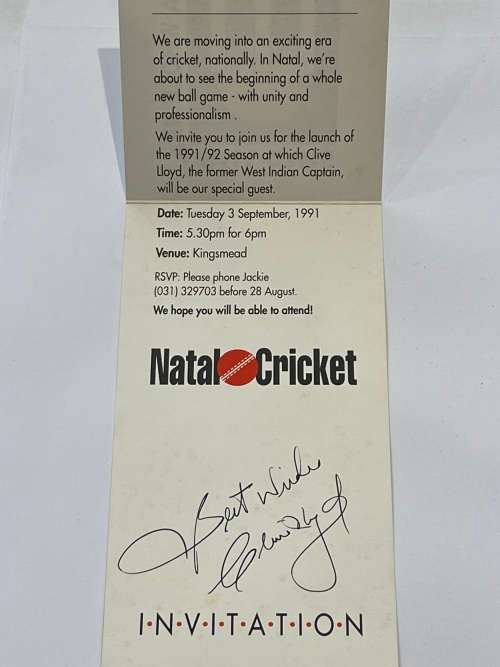 We are moving into an exciting era
of cricket, nationally. In Natal, we're
about to see the beginning of a whole
new ball game - with unity and
professionalism .
We invite you to join us for the launch of
the 1991/92 Season at which Clive
Lloyd, the former West Indian Captain,
will be our special guest.
Date: Tuesday 3 September, 1991
Time: 5.30pm for 6pm
Venue: Kingsmead
RSVP: Please phone Jackie
(031) 329703 before 28 August.
We hope you will be able to attend!
Natal Cricket
Best Wishes
Clive Lloyd
I·N·V·I·T·A·T·I·O·N